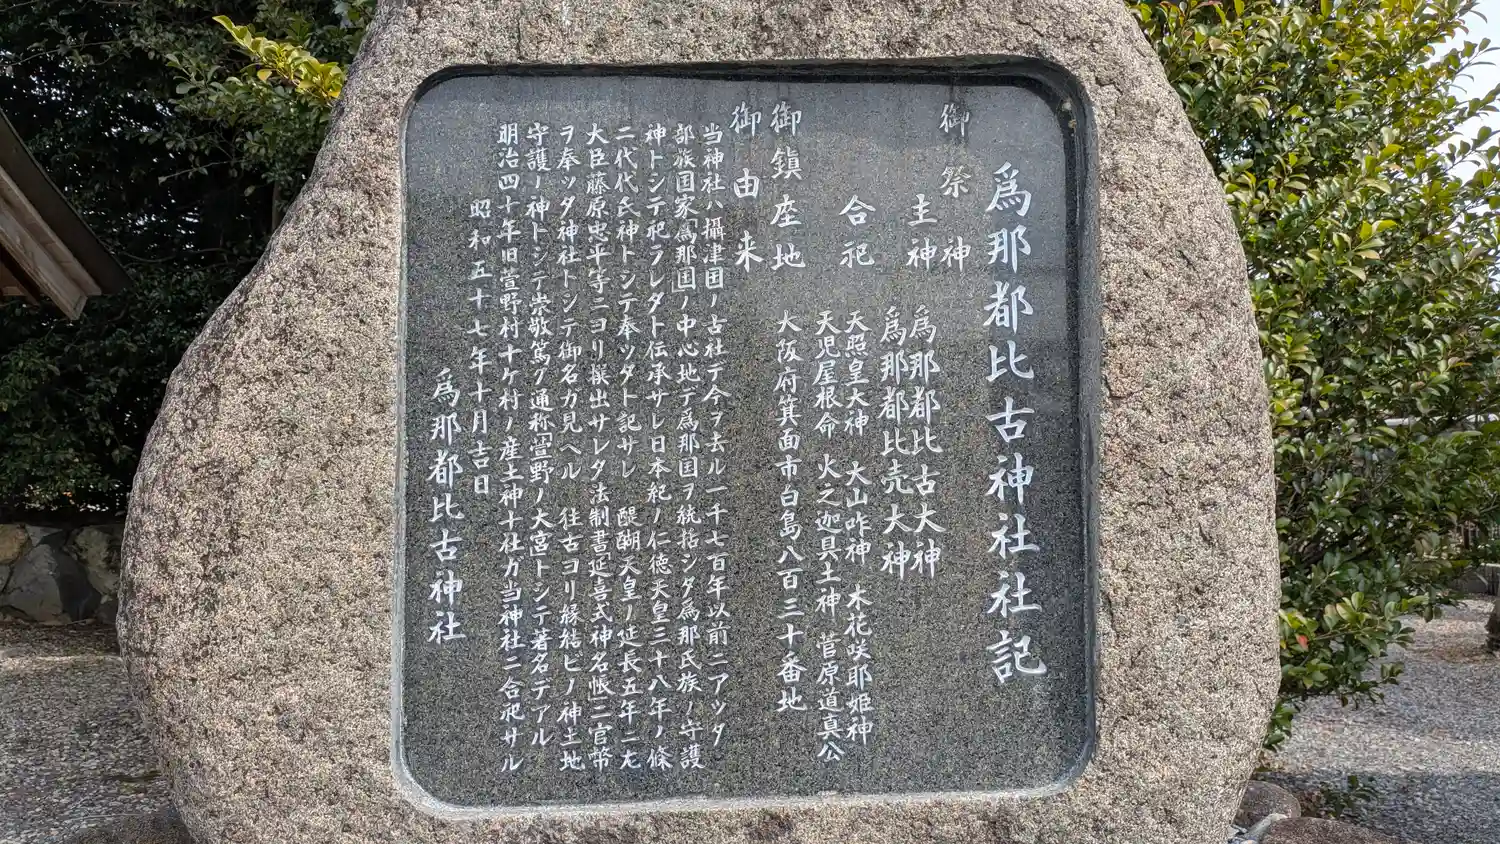 為那都比古神社社記
御祭神
主神 為那都比古大神
為那都比売大神
合祀 天照皇大神 大山咋神 木花咲耶姫神
天児屋根命 火之迦具土神 菅原道真公
御鎮座地 大阪府箕面市白島八百三十番地
御由来
当神社ハ攝津国ノ古社デ今ヲ去ル一千七百年以前ニアッタ
部族国家「為那国」ノ中心地デ為那国ヲ統括シタ為那氏族ノ守護
神トシテ祀ラレタト伝承サレ日本紀ノ仁徳天皇三十八年ノ條
ニ代代氏神トシテ奉ッタト記サレ 醍醐天皇ノ延長五年ニ左
大臣藤原忠平等ニヨリ撰出サレタ法制書「延喜式神名帳」ニ官幣
ヲ奉ッタ神社トシテ御名ガ見ヘル 往古ヨリ縁結ビノ神土地
守護ノ神トシテ崇敬篤ク通称「萱野ノ大宮」トシテ著名デアル
明治四十年旧萱野村十ケ村ノ産土神十社ガ当神社ニ合祀サル
昭和五十七年十月吉日
為那都比古神社